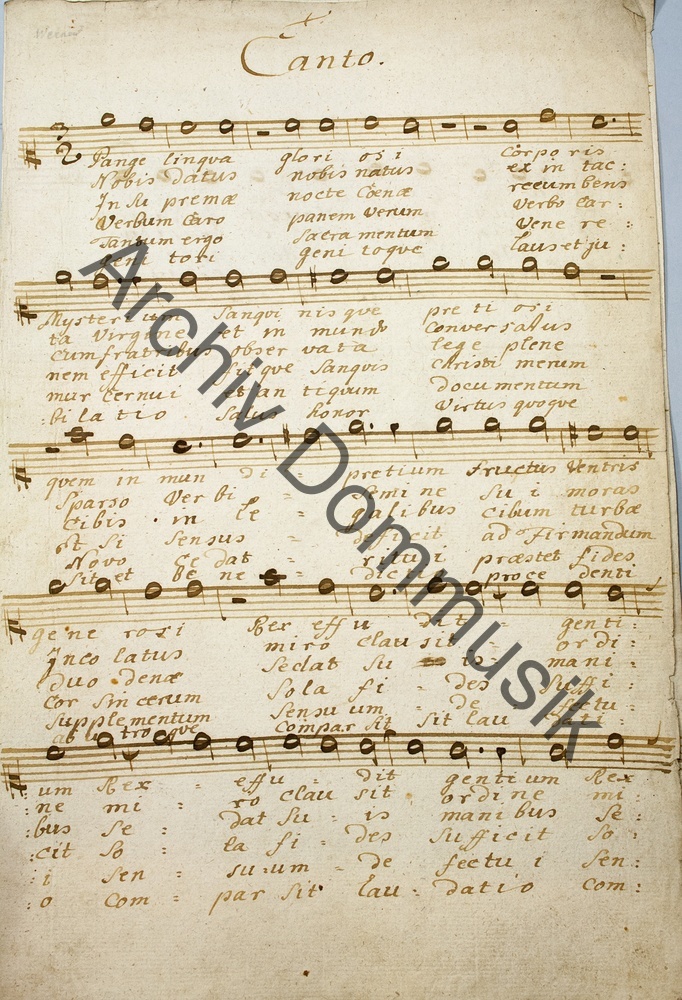 Werner
Canto.
3
2
Pange lingva glori osi Corporis
Nobis datus nobis natus ex in tac:
In su premæ nocte Coenæ recumbens
Verbum Caro panem verum Verbo Car:
Tantum ergo Sacramentum Vene re:
geni tori geni toqve laus et ju:
Mysterium Sangvi nisqve pre ti osi
ta Virgine et in mundo Conversatus
cum fratribus obser vata lege plene
nem efficit fitqve Sangvis Christi merum
mur Cernui et an tiqvum documentum
:bi la tio Salus honor Virtus qvoqve
qvem in mun di = pretium fructus Ventris
Sparso Verbi = Semine Su i moras
Cibis in le = galibus Cibum turbæ
et si Sensus = deficit ad Firmandum
Novo Cedat = ritui præstet fides
Sit et be ne = dic proce denti
gene rosi Rex effu = dit = genti:
Inco latus miro clau sit = ordi:
duo denæ Se dat Su = is = mani:
Cor Sincerum Sola fi = des Suffi:
Supplementum Sensu um = de = fectu:
ab utroqve Compar sit Sit lau = dati:
um Rex = effu = dit gentium Rex
:ne mi = ro clau sit ordine mi:
:bus Se = dat Su = is manibus Se:
:cit So = la fi = des Sufficit So:
:i Sen = su:um = de fectu i Sen:
:o Com = par sit lau = datio Com:
Archiv Dommusik